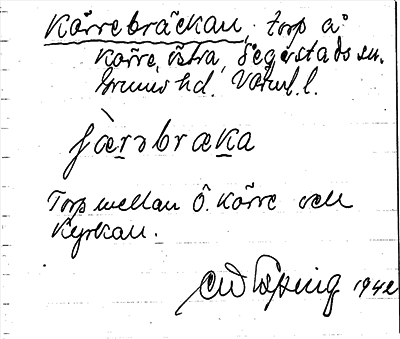 Körrebräckan, torp å
Körre, östra, Segerstads sn.
Grums hd. Värml. l.
jær̲əbræk̲a
Torp mellan Ö. Körre och
kyrkan.
1942